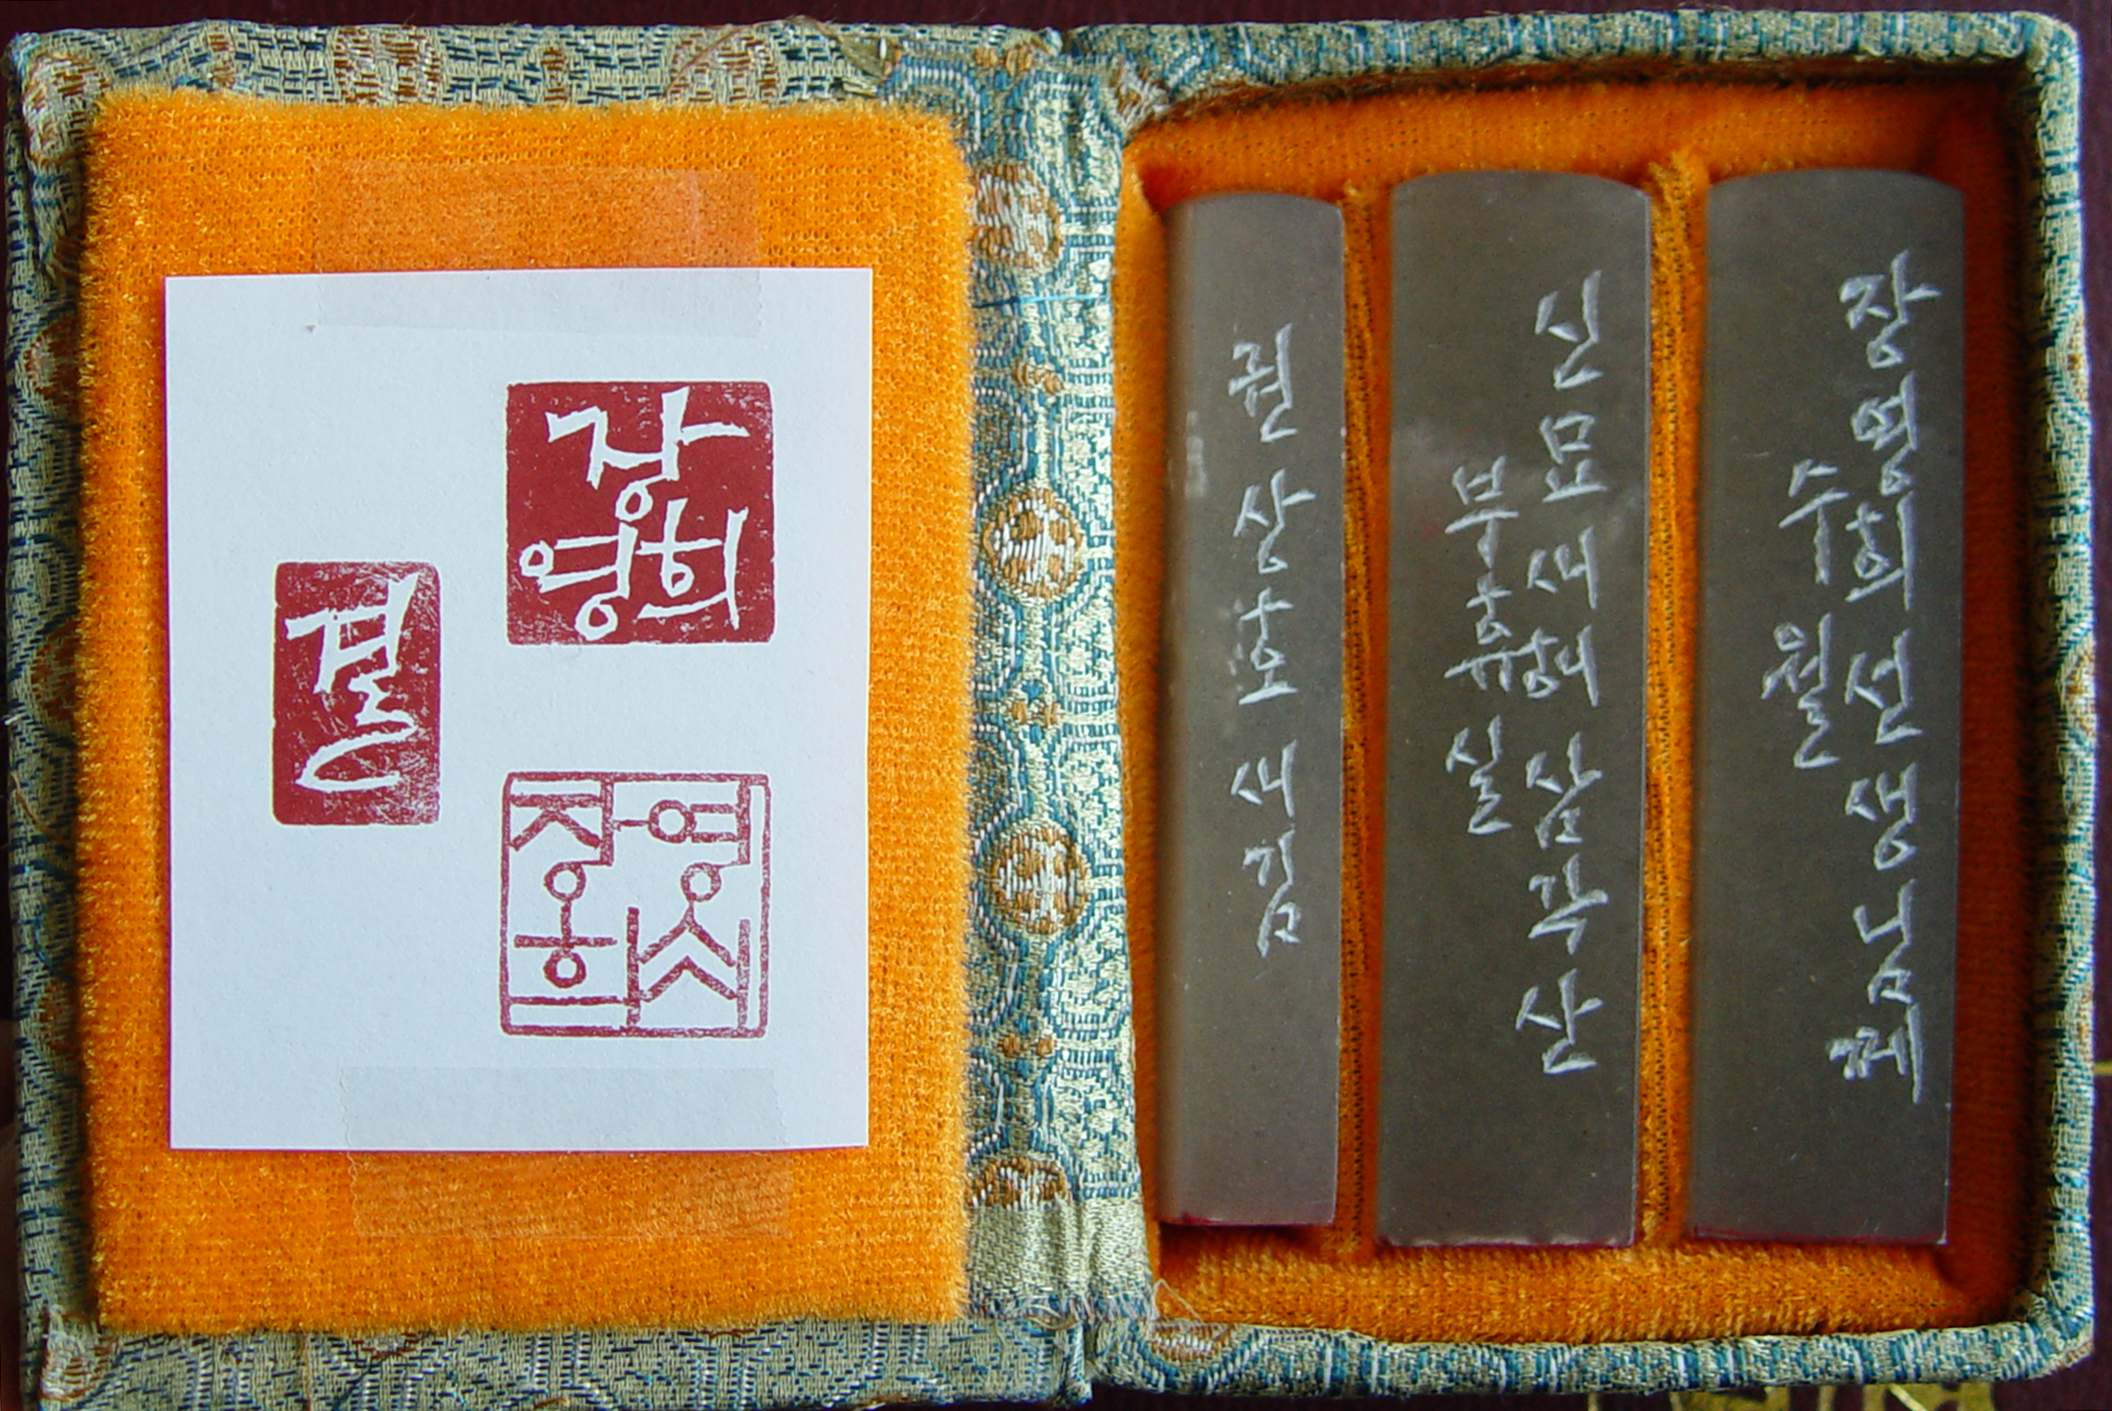 장영희
결
장영희
장영희선생님께
수월
신묘새해삼각산
부휴실
권상호새김